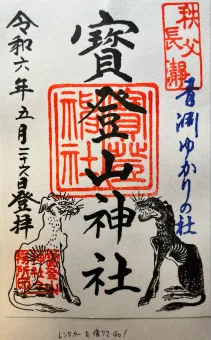 秩父
長瀞
青淵ゆかりの社
寳登山神社
寳登山神社
令和六年五月二十六日登拝
レンタカーを借りてGO!